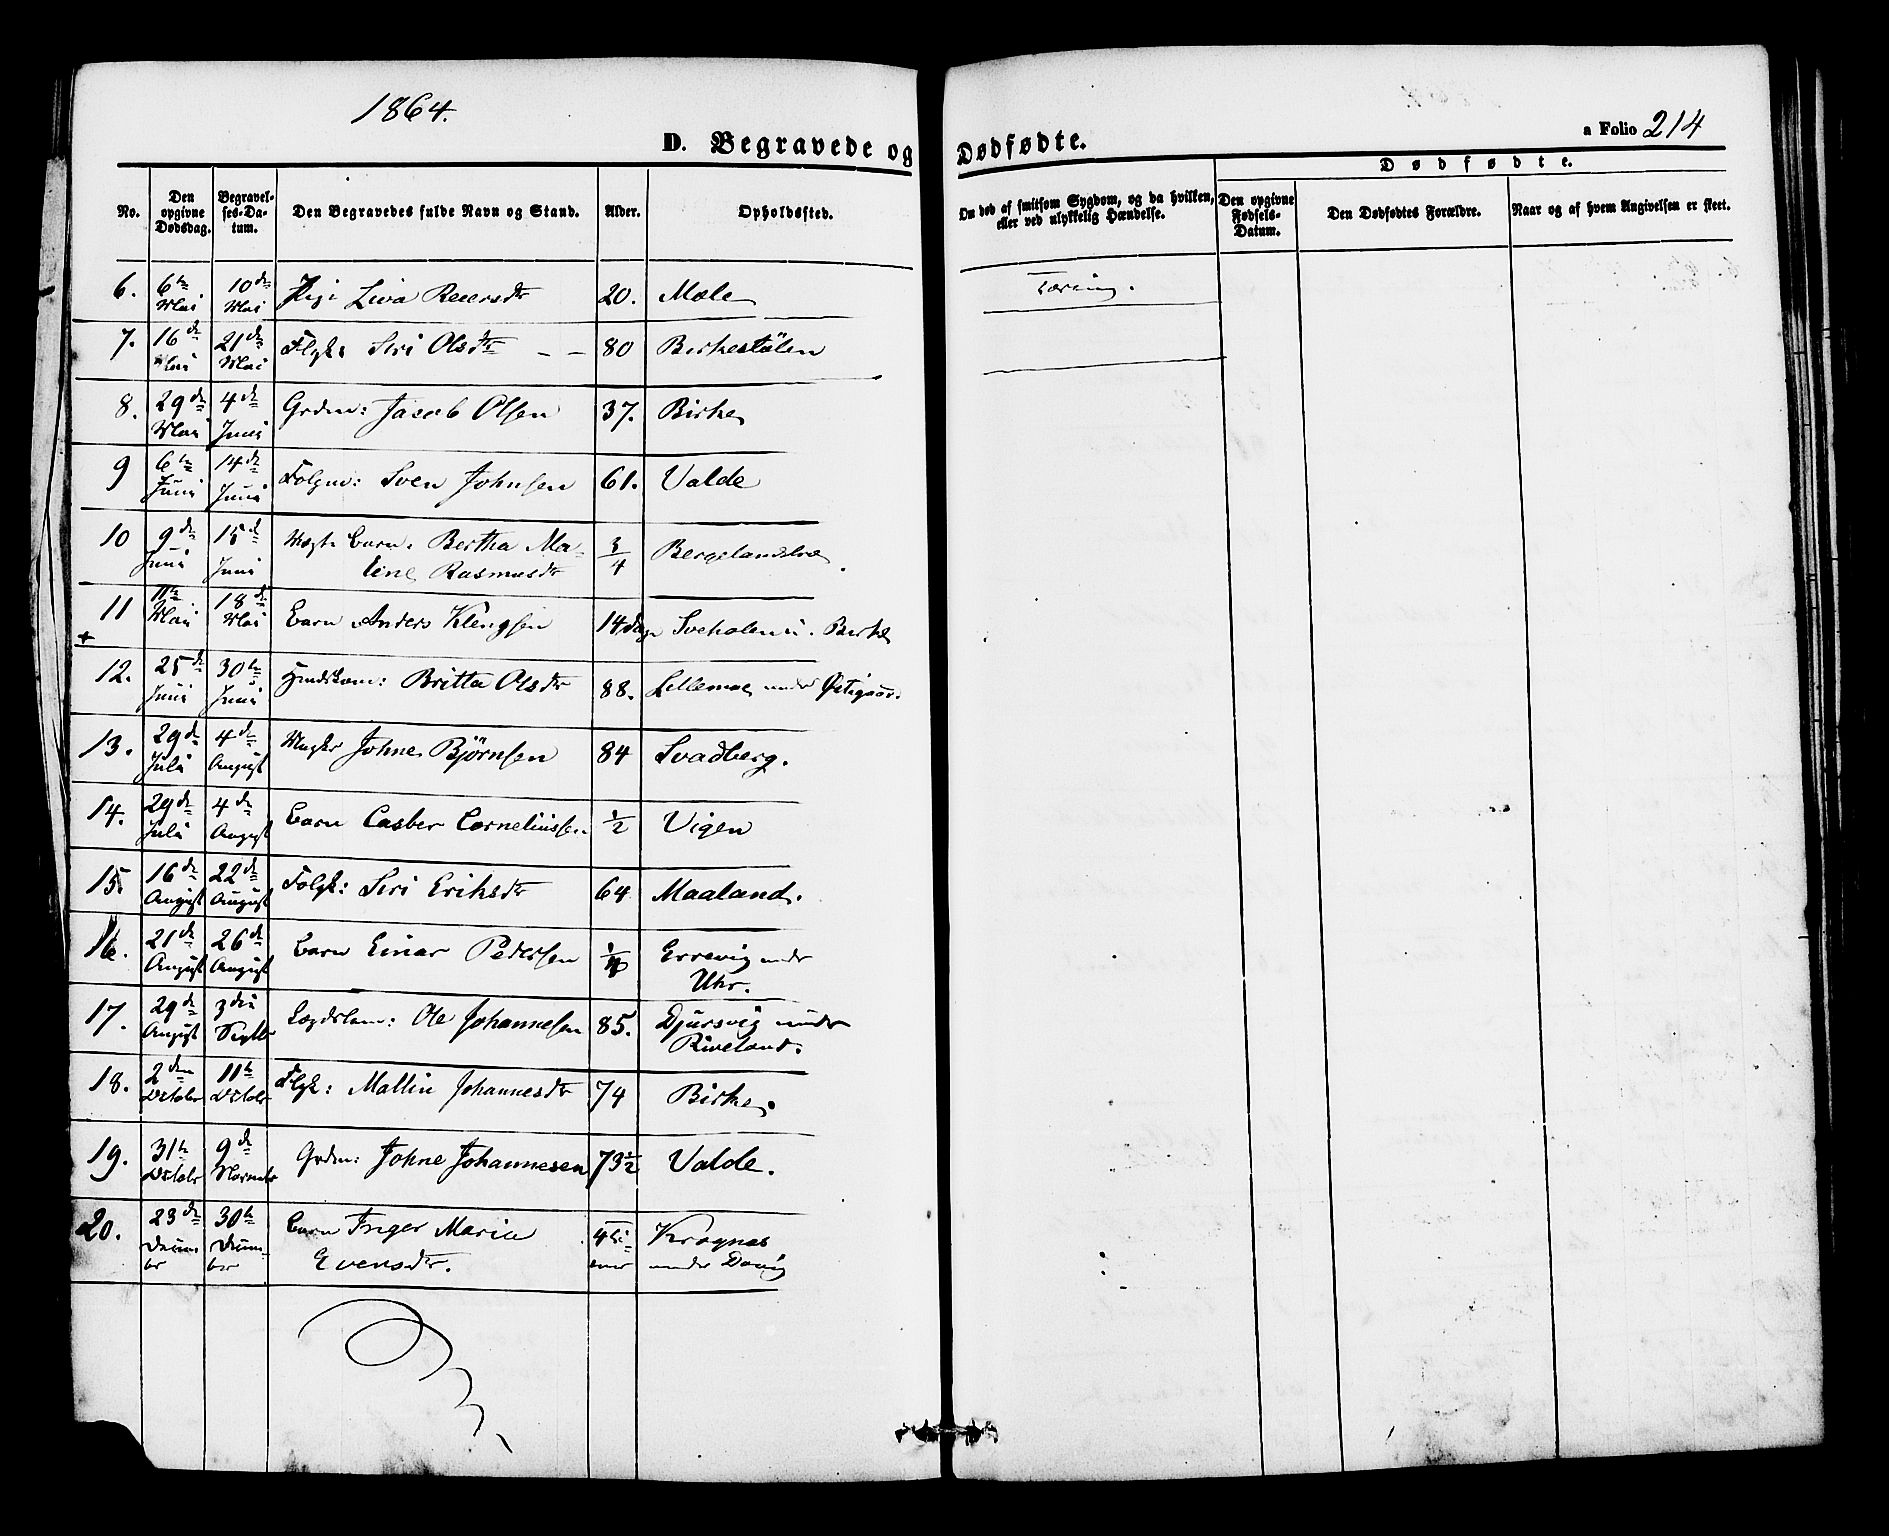 1864.
D. Begravede og Dødfødte.
a Folio 214
No.
Den opgivne Dødsdag.
Begravelses-Datum.
Den Begravedes fulde Navn og Stand.
Alder.
Opholdssted.
Om død af smitsom Sygdom, og da hvilken, eller ved ulykkelig Hændelse.
Dødfødte.
Den opgivne Fødsels-Datum.
Den Dødfødtes Forældre.
Naar og af hvem Angivelsen er skeet.
6. 6te Mai 10de Mai Pige Liva Reiersdtr 20. Mæle Tæring.
7. 16de Mai 21de Mai Flgk: Siri Olsdtr - - 80 Birkestölen
8. 29de Mai 4de Juni Grdm: Jacob Olsen 37. Birke
9 6te Juni 14de Juni Folgm: Sven Johnsen 61. Valde
10 9de Juni 15de Juni Barn. Bertha Ma-
line Rasmusdtr 3/4
11 11te Mai 18de Mai Barn Anders Klengsen 14 Dage Sveholen u. Birke
12. 25de Juni 30te Juni Britta Olsdtr 88. Lillemoe under
13. 29de Juli 4de August Johne Bjørnsen 84 Svadberg.
14. 29de Juli 4de August Barn Casber Corneliussen 1/2 Vigen
15 16de August 22de August Folgk: Siri Eriksdtr 64 Maaland.
16. 21de August 26de August Barn Einar Pedersen Errevig under
Uhr.
17. 29de August 3die Septbr Lægdslem: Ole Johannesen 85. Djursvig under
Riveland.
18. 2den October 11te October Flgk: Mallin Johannesdtr 74 Birke.
19. 31te October 9de November Grdm: Johne Johannesen 73 1/2 Valde.
20. 23de December 30te December Barn Inger Marie
Evensdtr. Kragnes
under